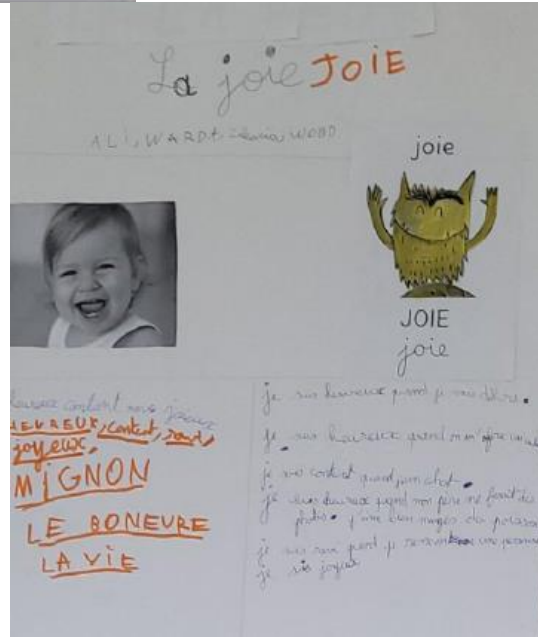 La joie JOIE
ALI, WARDA WOBD
joie
JOIE
joie
heureux content joyeux
HEUREUX, content, ravi,
joyeux,
MiGNON
LE BONEURE
LA ViE
je suis heureux quand je me
je suis heureux quand on m'offre un
je suis content quand
je suis heureux quand mon père me fait des
photos. j'aime bien manger du poisson
je suis ravi quand je rencontre une
je suis joyeux